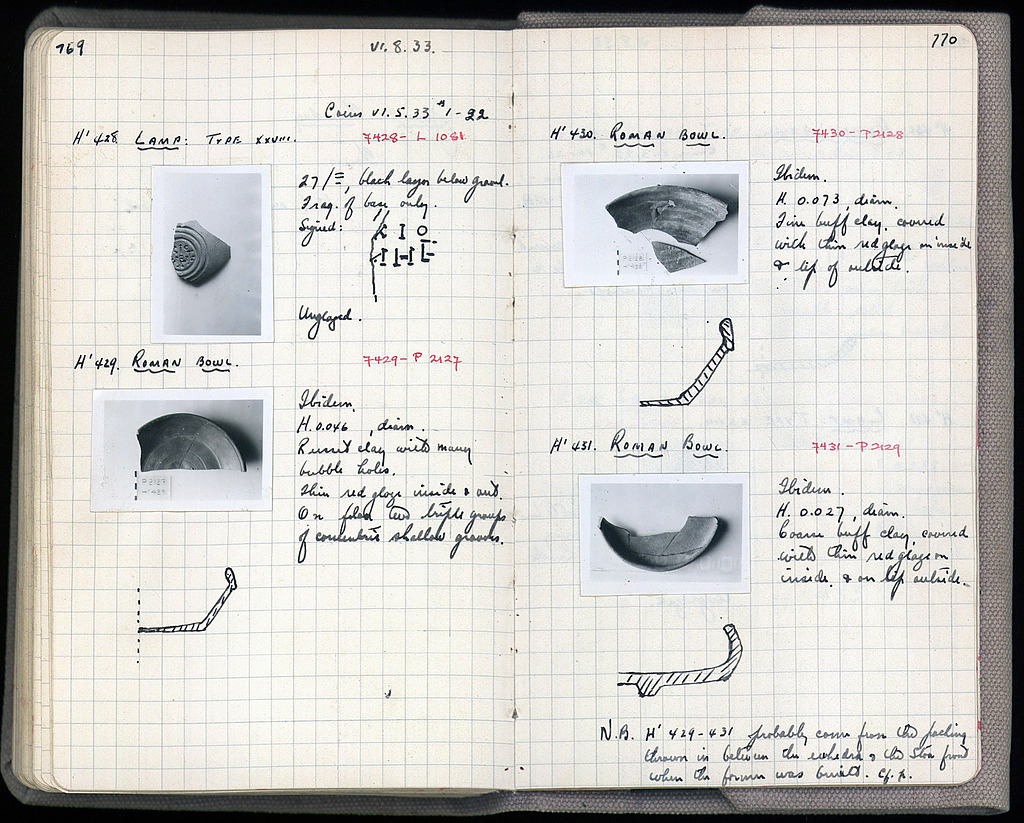 769
VI. 8. 33.
Coins VI. 5. 33 #1-22
H' 428. LAMP: TYPE XXVIII.
7428 - L 1081
27/=, black layer below gravel.
Frag. of base only.
Signed:
Unglazed.
H' 429. ROMAN BOWL.
7429 - P 2127
Ibidem.
H. 0.046 , diam.
Russet clay with many
bubble holes.
Thin red glaze inside & out.
On floor two triple groups
of concentric shallow grooves.
P 2127
770
H' 430. ROMAN BOWL.
7430 - P 2128
Ibidem.
H. 0.073, diam.
Fine buff clay, covered
with thin red glaze on inside
& lip of outside.
P 2128
H' 431. ROMAN BOWL.
7431 - P 2129
Ibidem.
H. 0.027, diam.
Coarse buff clay, covered
with thin red glaze on
inside & on lip outside.
N.B. H' 429-431 probably come from the packing
thrown in between the exhedra & the Stoa front
when the former was built. Cf. p.